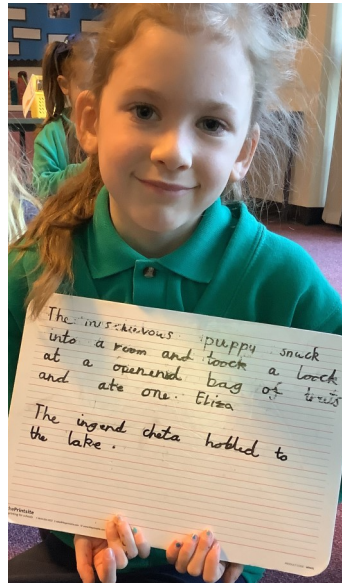 The mischievous puppy snuck
into a room and toock a loock
at a openend bag of treits
and ate one. Eliza
The ingerd cheta hobled to
the lake.